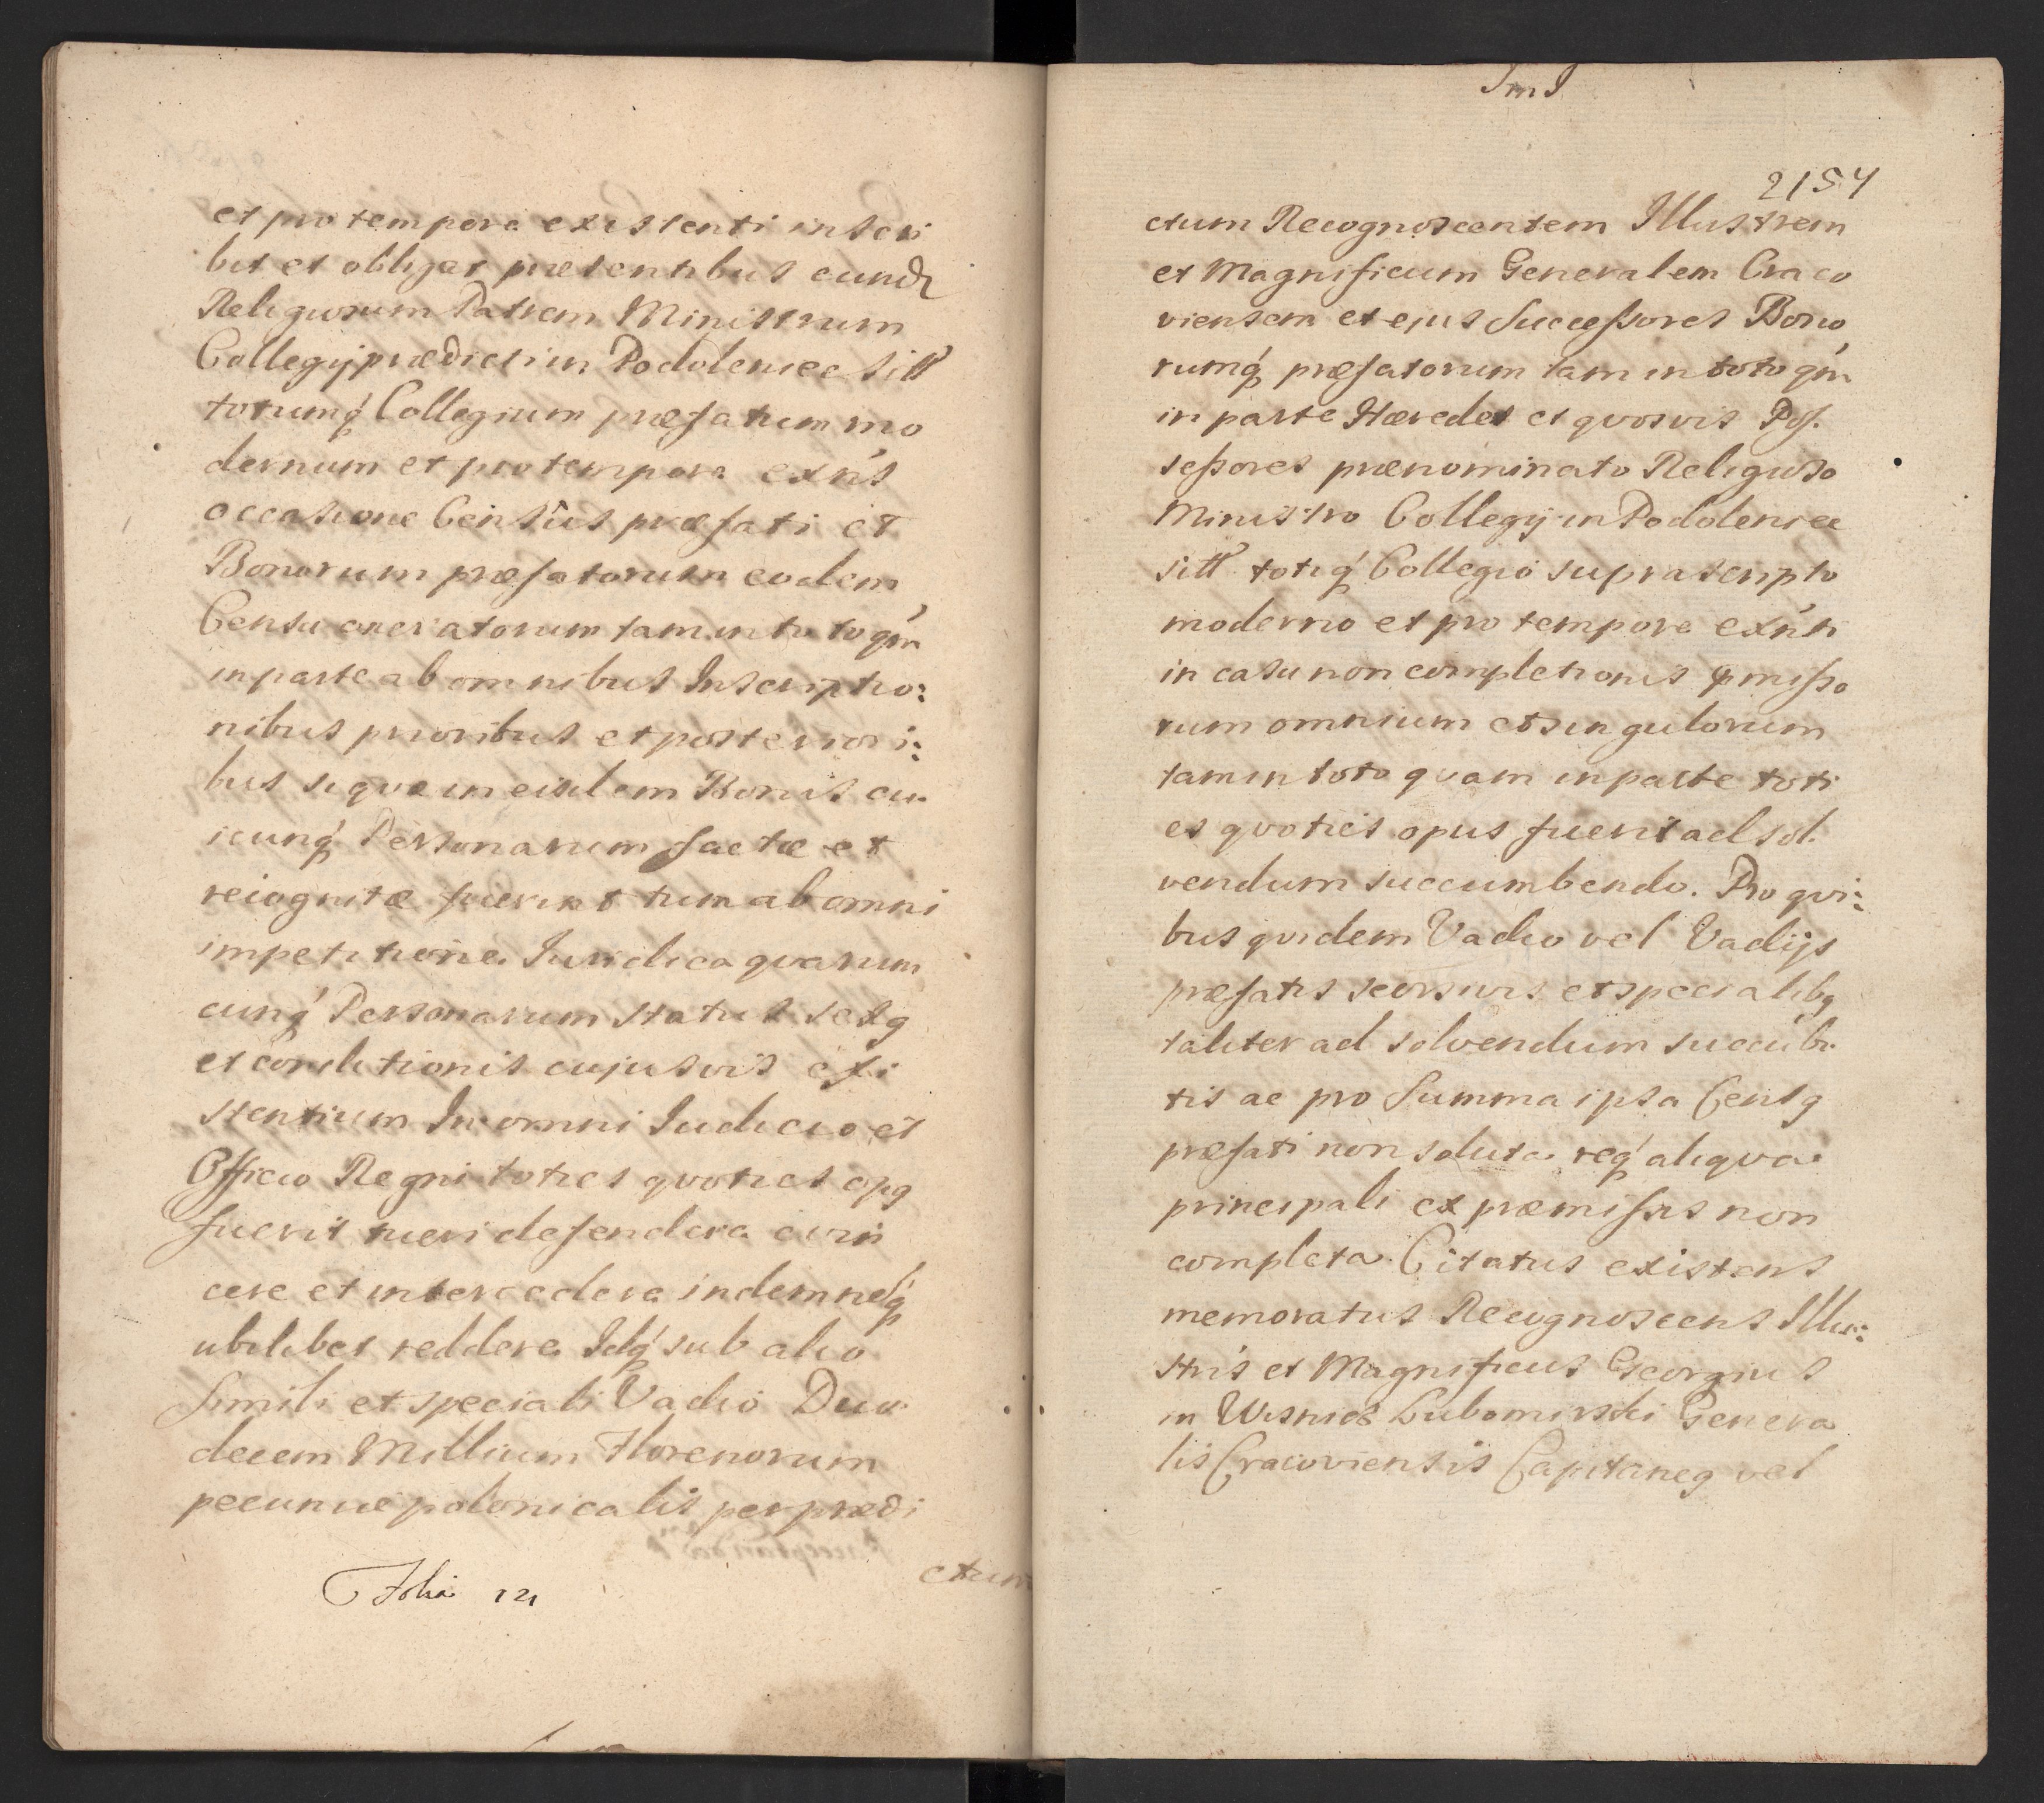 et pro tempore existenti inscri
bit et obligat præsentibus eund
Religiosum Patrem Ministrum
Collegij prædicti in Podoleniec sitt
totumq́ Collegium præfatum mo
dernum et pro tempore exńs
occasione Censûs præfati et
Bonorum præfatorum eodem
Censu oneratorum tam in toto qḿ
in parte ab omnibus Inscriptio:
nibus prioribus et posteriori:
bus si quæ in eisdem Bonis cu
icunq́ Personarum factæ et
recognitæ fuerint tum ab omni
impetitione Iuridica quarum
cunq́ Personarum status sexg
et conditionis cujusvis exi
stentium In omni Iudicio et
Officio Regni toties quoties opg
fuerit tueri defendere evin
cere et intercedere indemneq́
ubilibet reddere Idq́ sub alio
simili et speciali Vadio Duo
decem Millium Florenorum
pecuniæ polonicalis per prædi
ctum
Folia 121
2154
ctum Recognoscentem Illustrem
et Magnificum Generalem Craco
viensem et ejus Successores Bono
rumq́ præfatorum tam in toto qḿ
in parte Hæredes et quosvis Pos.
sessores prænominato Religioso
Ministro Collegij in Podoleniec
sitt totiq́ Collegio suprascripto
moderno et pro tempore exńti
in casu non completionis pmisso
rum omnium et singulorum
tam in toto quam in parte toti
es quoties opus fuerit ad sol
vendum succumbendo. Pro qvi:
bus quidem Vadio vel Vadijs
præfatis seorsivis et specialibg
taliter ad solvendum succúbi
tis ac pro Summa ipsa Censg
præfati non soluta req́ aliqua
principali ex præmissis non
completa Citatus existens
memoratus Recognoscens Illu:
stris et Magnificus Georgius
in Wisnicz Lubomirski Genera
lis Cracoviensis Capitaneg vel